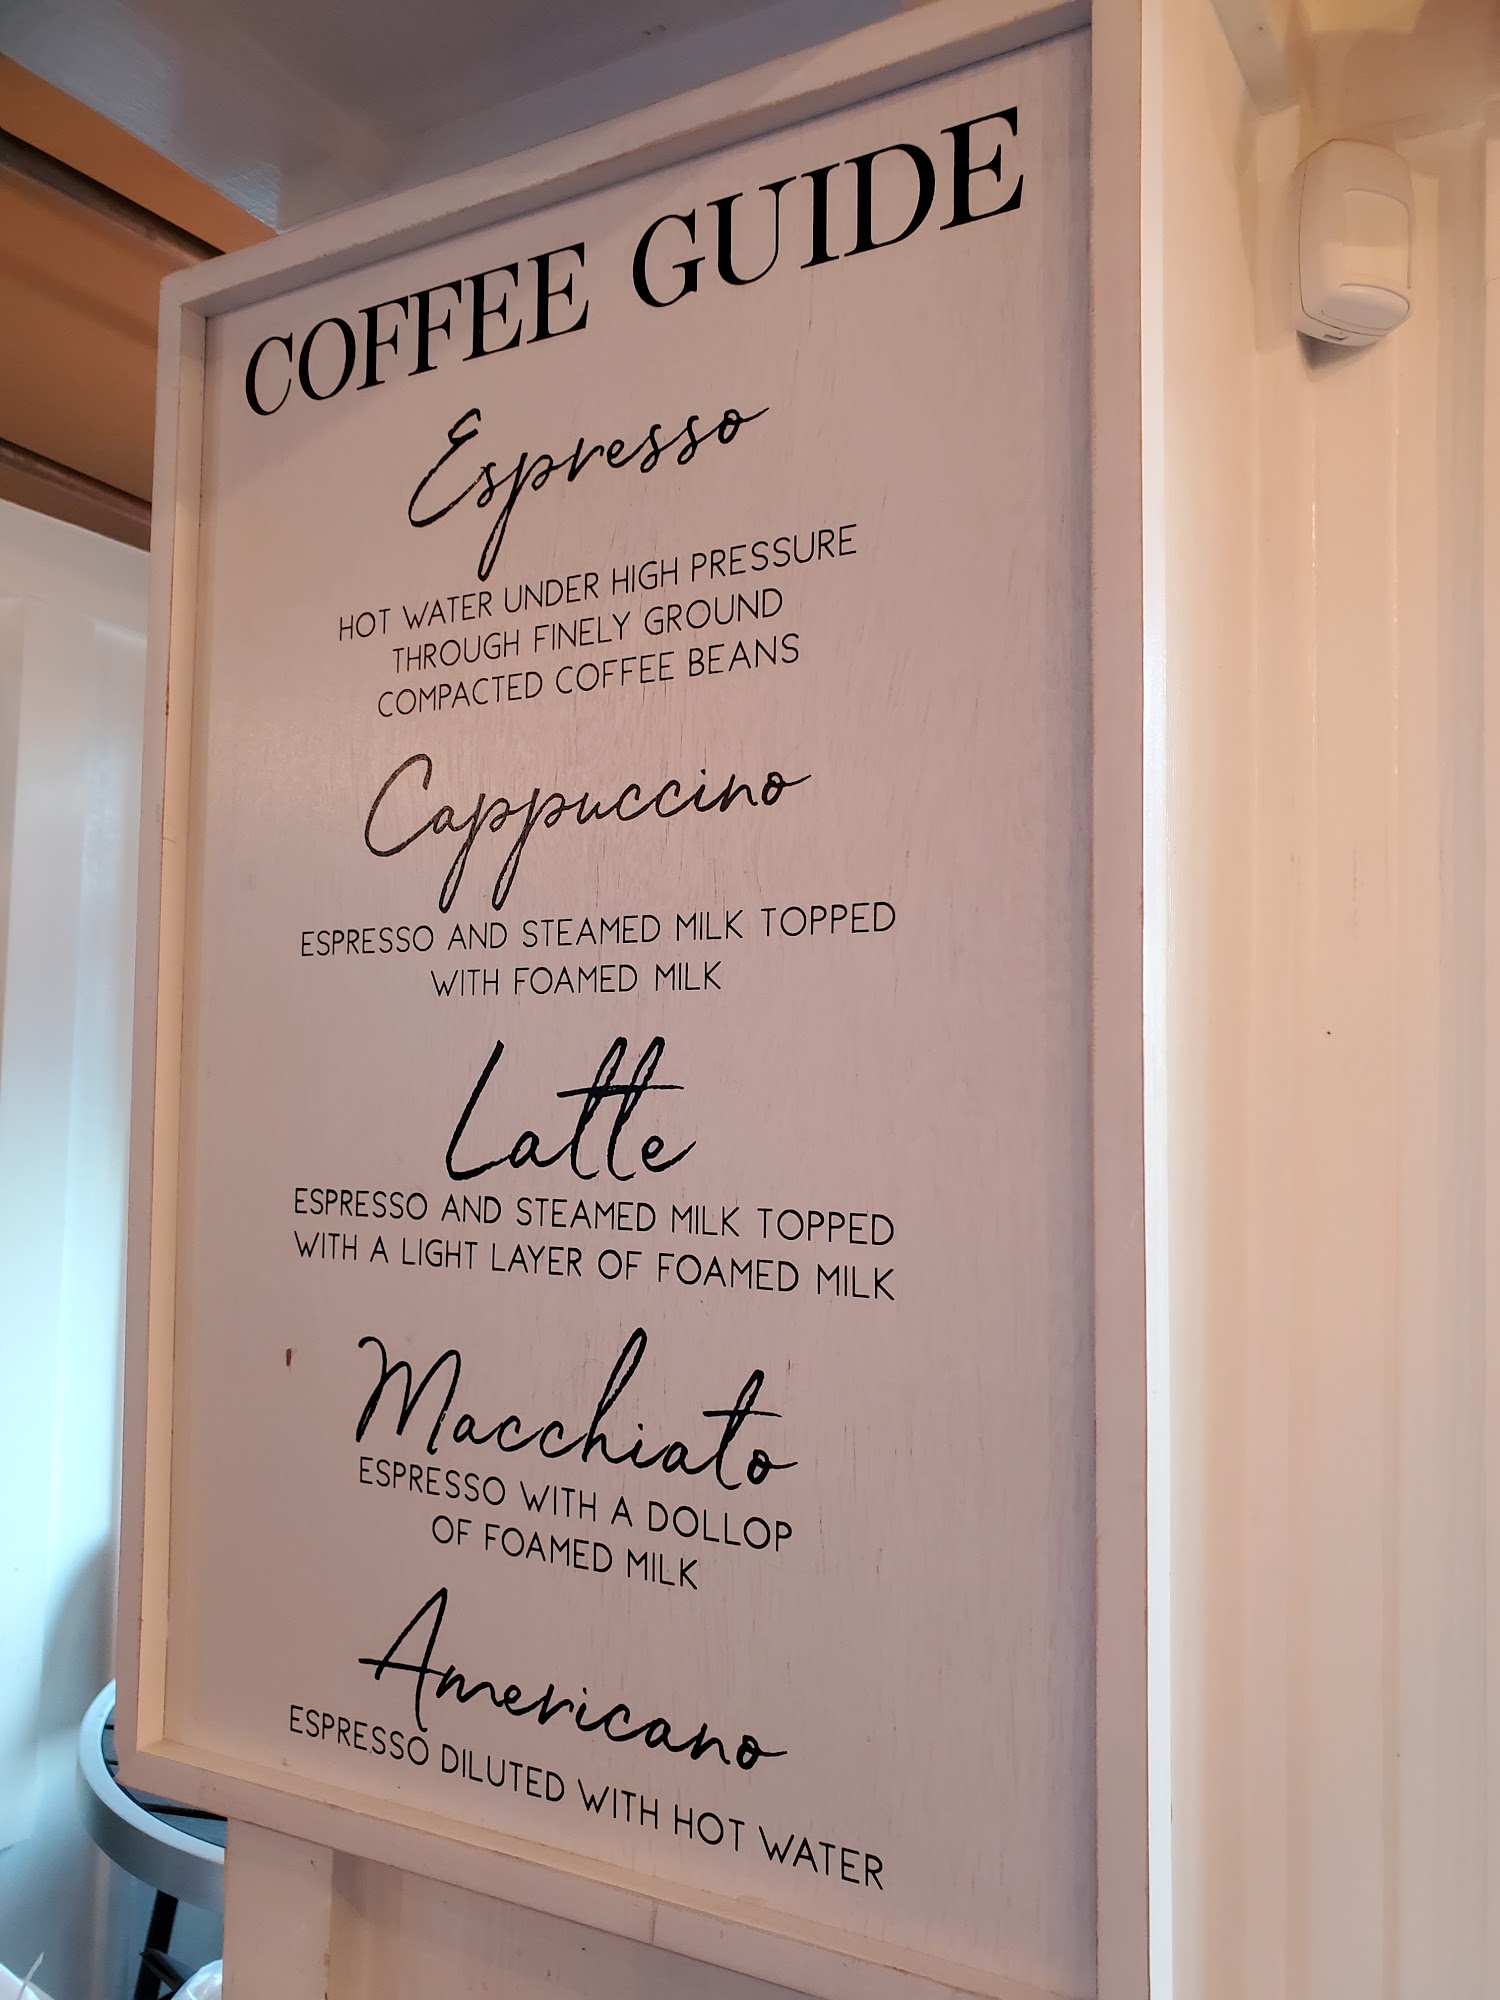 COFFEE GUIDE
Espresso
HOT WATER UNDER HIGH PRESSURE
THROUGH FINELY GROUND
COMPACTED COFFEE BEANS
Cappuccino
ESPRESSO AND STEAMED MILK TOPPED
WITH FOAMED MILK
Latte
ESPRESSO AND STEAMED MILK TOPPED
WITH A LIGHT LAYER OF FOAMED MILK
Macchiato
ESPRESSO WITH A DOLLOP
OF FOAMED MILK
Americano
ESPRESSO DILUTED WITH HOT WATER